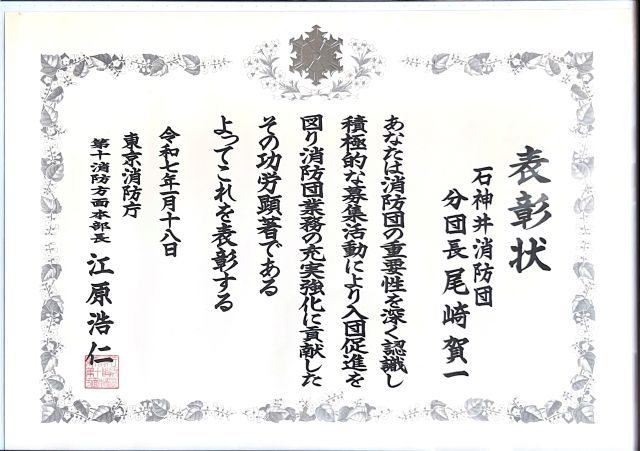 表彰状
石神井消防団
分団長 尾崎賀一
あなたは消防団の重要性を深く認識し
積極的な募集活動により入団促進を
図り消防団業務の充実強化に貢献した
その功労顕著である
よってこれを表彰する
令和七年一月十八日
東京消防庁
第十消防方面本部長 江原浩仁